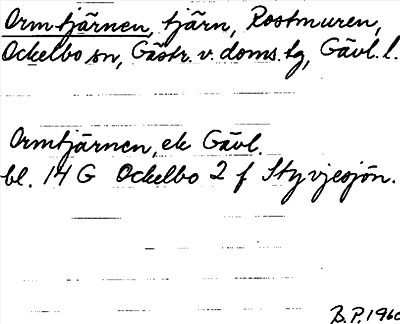 Ormtjärnen, tjärn, Rostmuren,
Ockelbo sn, Gästr. v. doms. tg, Gävl. l.
Ormtjärnen, ek Gävl.
bl. 14 G Ockelbo 2 f Styvjesjön.
B.P. 1960